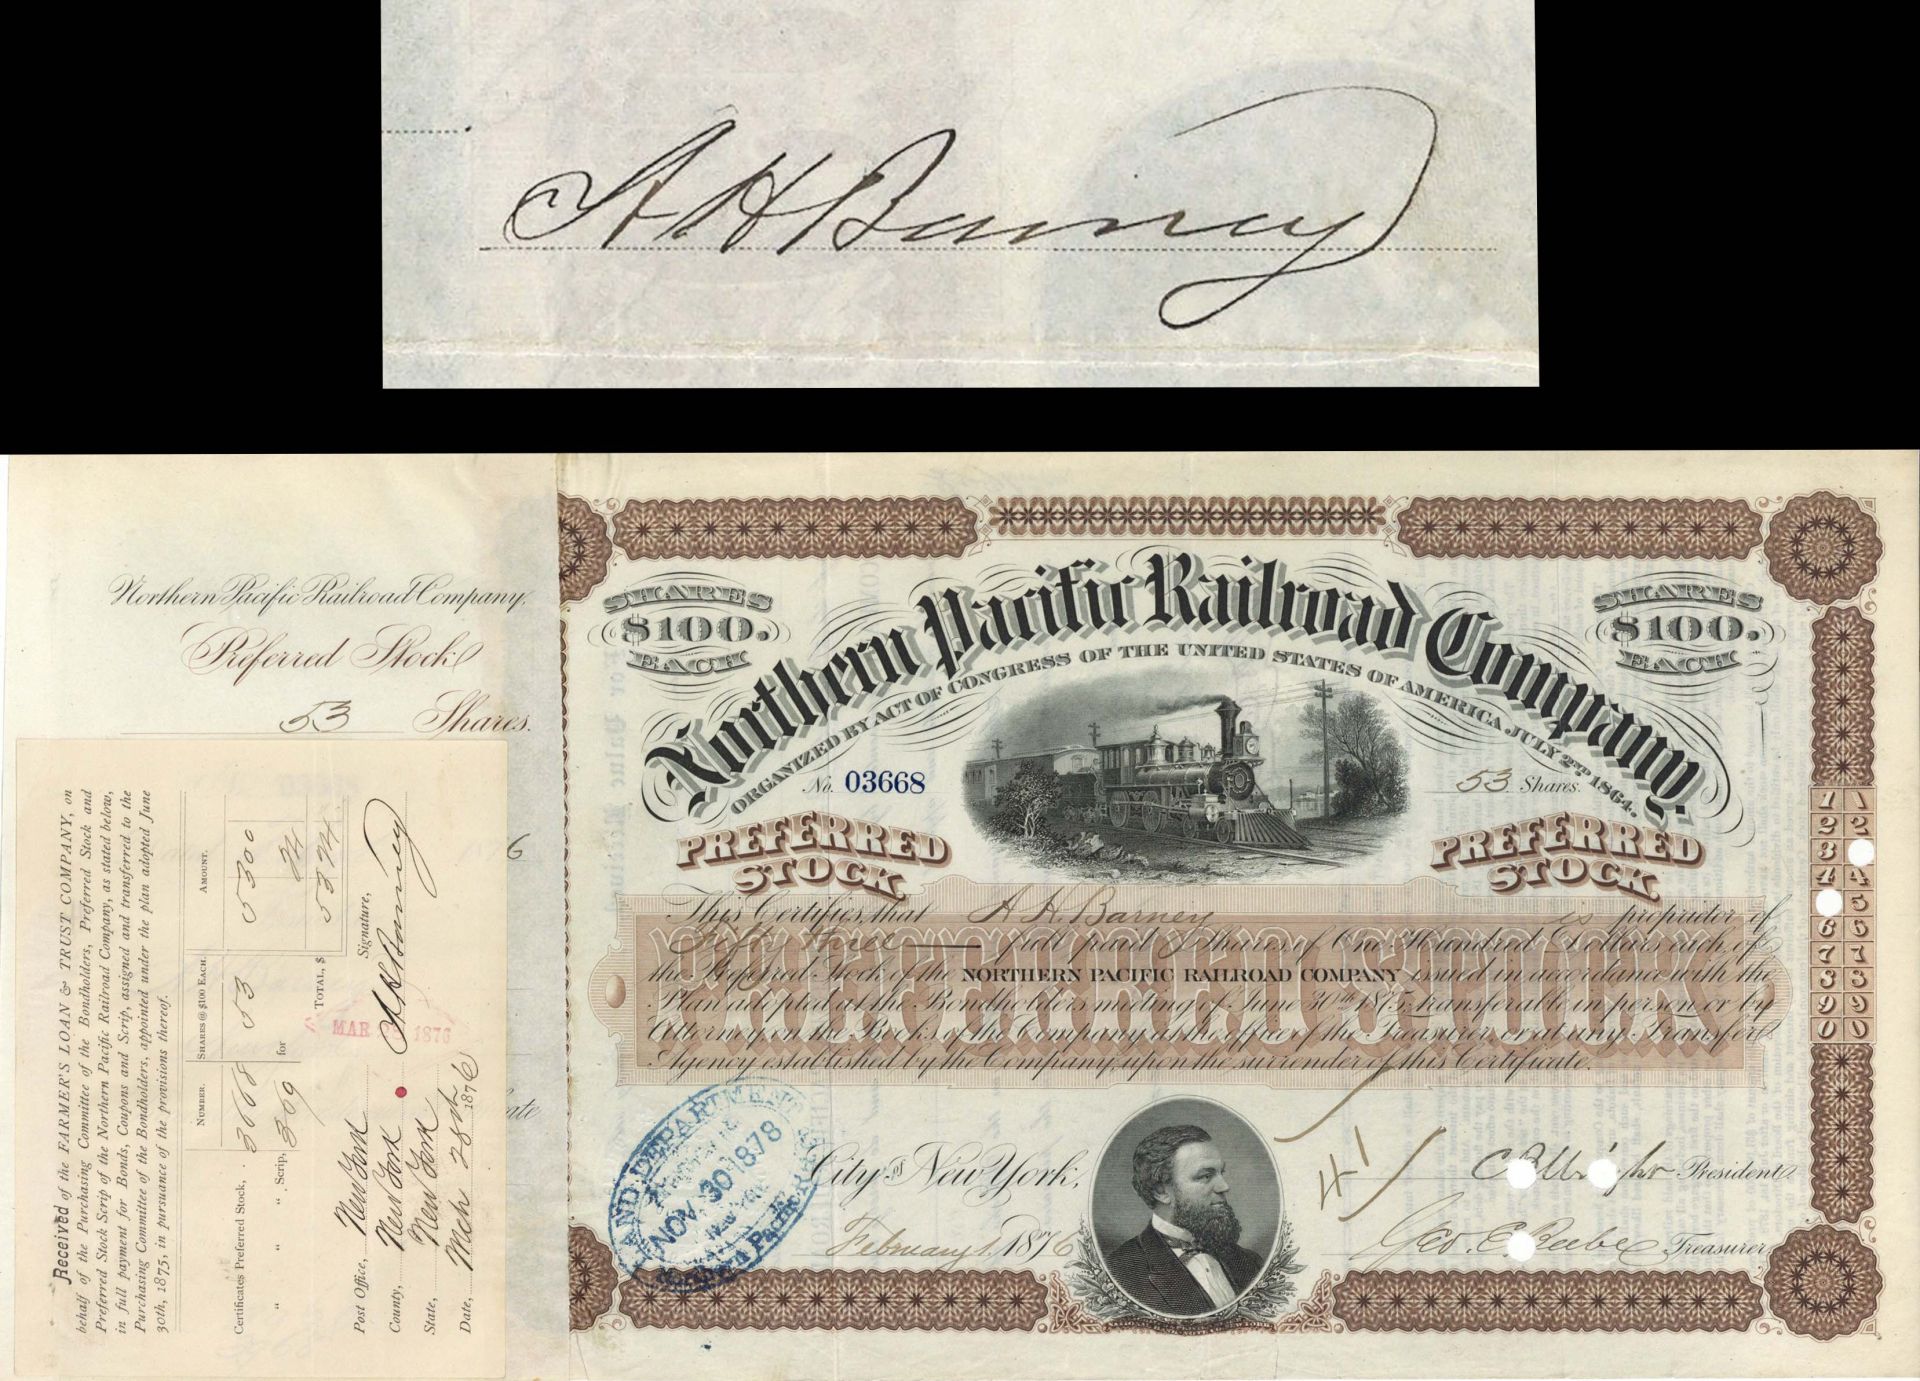 A H Barney
Northern Pacific Railroad Company.
Preferred Stock
53 Shares.
Received of the FARMER'S LOAN & TRUST COMPANY, on
behalf of the Purchasing Committee of the Bondholders, Preferred Stock and
Preferred Stock Scrip of the Northern Pacific Railroad Company, as stated below,
in full payment for Bonds, Coupons and Scrip, assigned and transferred to the
Purchasing Committee of the Bondholders, appointed under the plan adopted June
30th, 1875, in pursuance of the provisions thereof.
NUMBER. SHARES @ $100 EACH. AMOUNT.
Certificates Preferred Stock, 3668 53 5300
" " " Scrip, 309 for 24
TOTAL, $ 5324
MAR 1876
Post Office, New York Signature,
County, New York A H Barney
State, New York
Date, Mch 28th 1876
SHARES
$100.
EACH
Northern Pacific Railroad Company.
ORGANIZED BY ACT OF CONGRESS OF THE UNITED STATES OF AMERICA, JULY 2ND 1864.
SHARES
$100.
EACH
No. 03668
53 Shares.
PREFERRED
STOCK
PREFERRED
STOCK
This Certifies, that A H. Barney is proprietor of
Fifty three full paid Shares, of One Hundred Dollars each, of
the Preferred Stock of the NORTHERN PACIFIC RAILROAD COMPANY issued in accordance with the
Plan adopted at the Bondholders meeting of June 30th 1875, transferable in person or by
Attorney on the Books of the Company at the office of the Treasurer or at any Transfer
Agency established by the Company, upon the surrender of this Certificate.
PREFERRED STOCK
1 1
2 2
3
4 4
5
6 6
7 7
8 8
9 9
0 0
LAND DEPARTMENT
NOV. 30 1878
NEW YORK
Northern Pacific
City of New York,
February 1, 1876
President
Geo. E. Beebe Treasurer